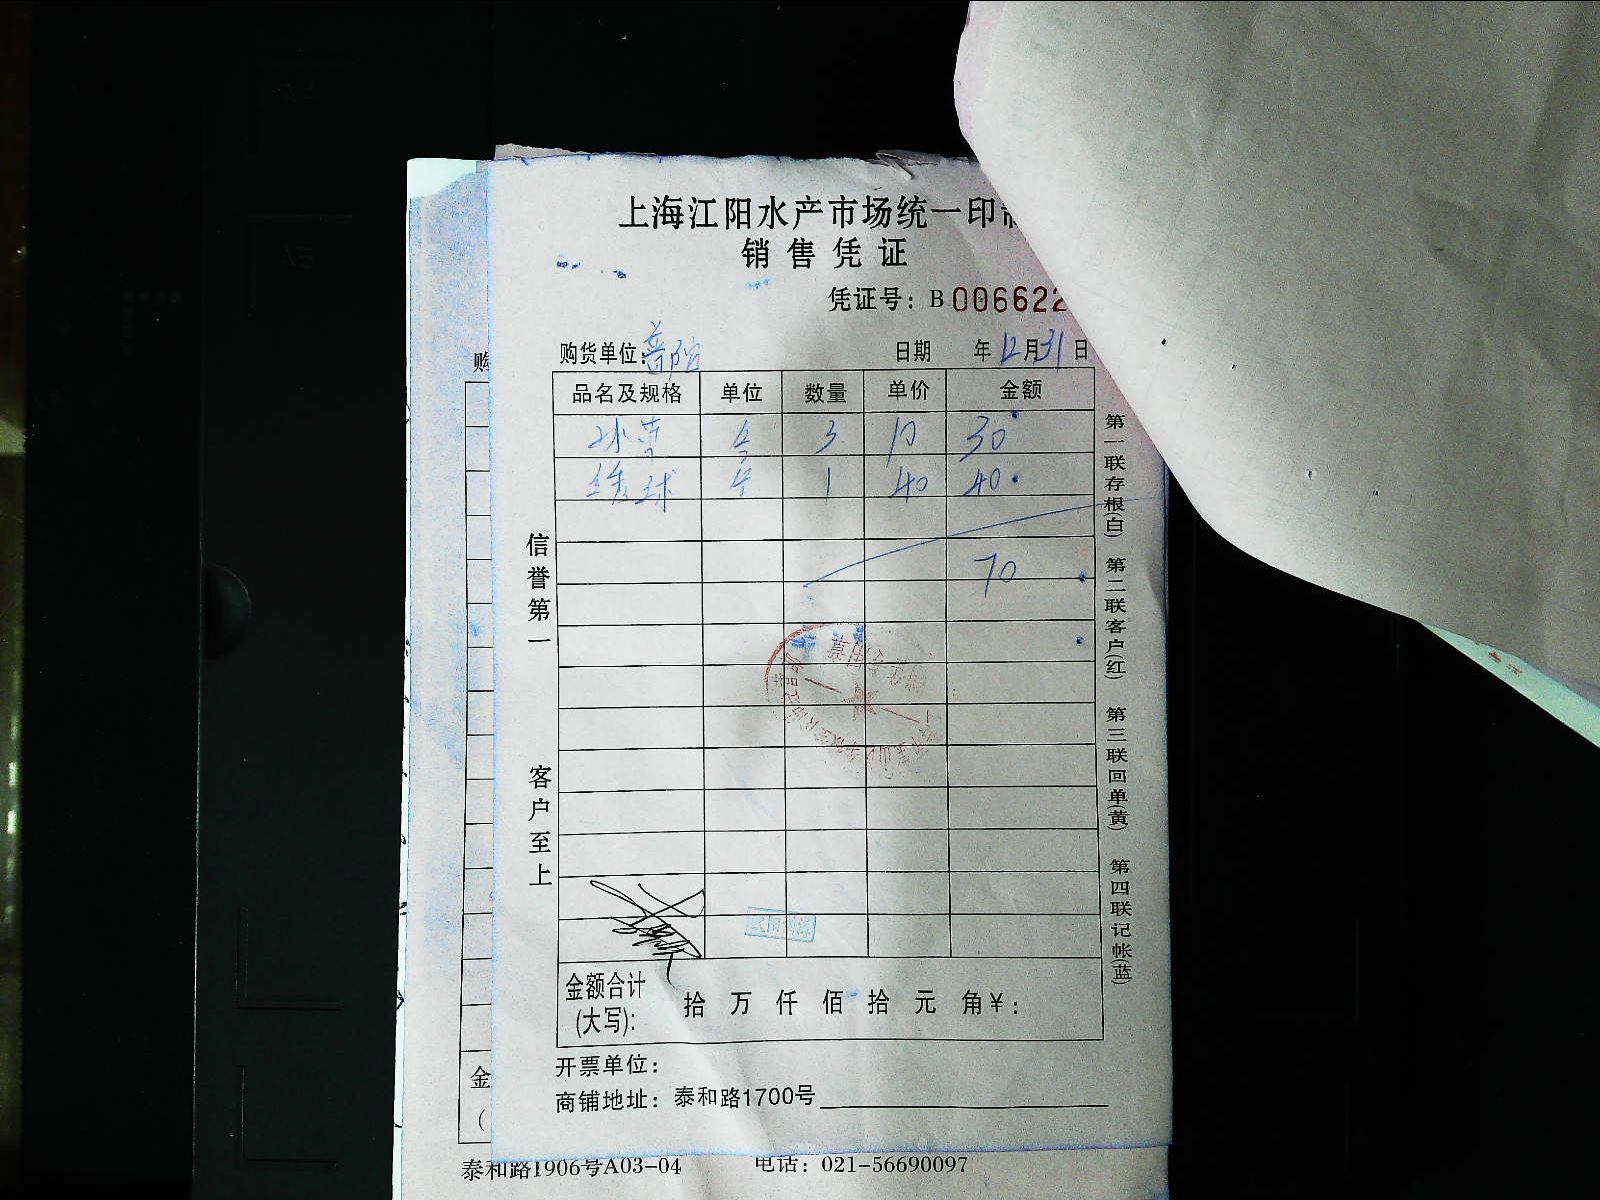 上海江阳水产市场统一印制
销售凭证
凭证号：B 006622
购货单位：普陀 日期 年12月31日
品名及规格 单位 数量 单价 金额
3 10 30
绣球 1 40 40
70
信誉第一
客户至上
第一联存根(白) 第二联客户(红) 第三联回单(黄) 第四联记帐(蓝)
金额合计(大写)： 拾 万 仟 佰 拾 元 角 ¥：
开票单位：
商铺地址：泰和路1700号
购
金
（
泰和路1906号A03-04 电话：021-56690097